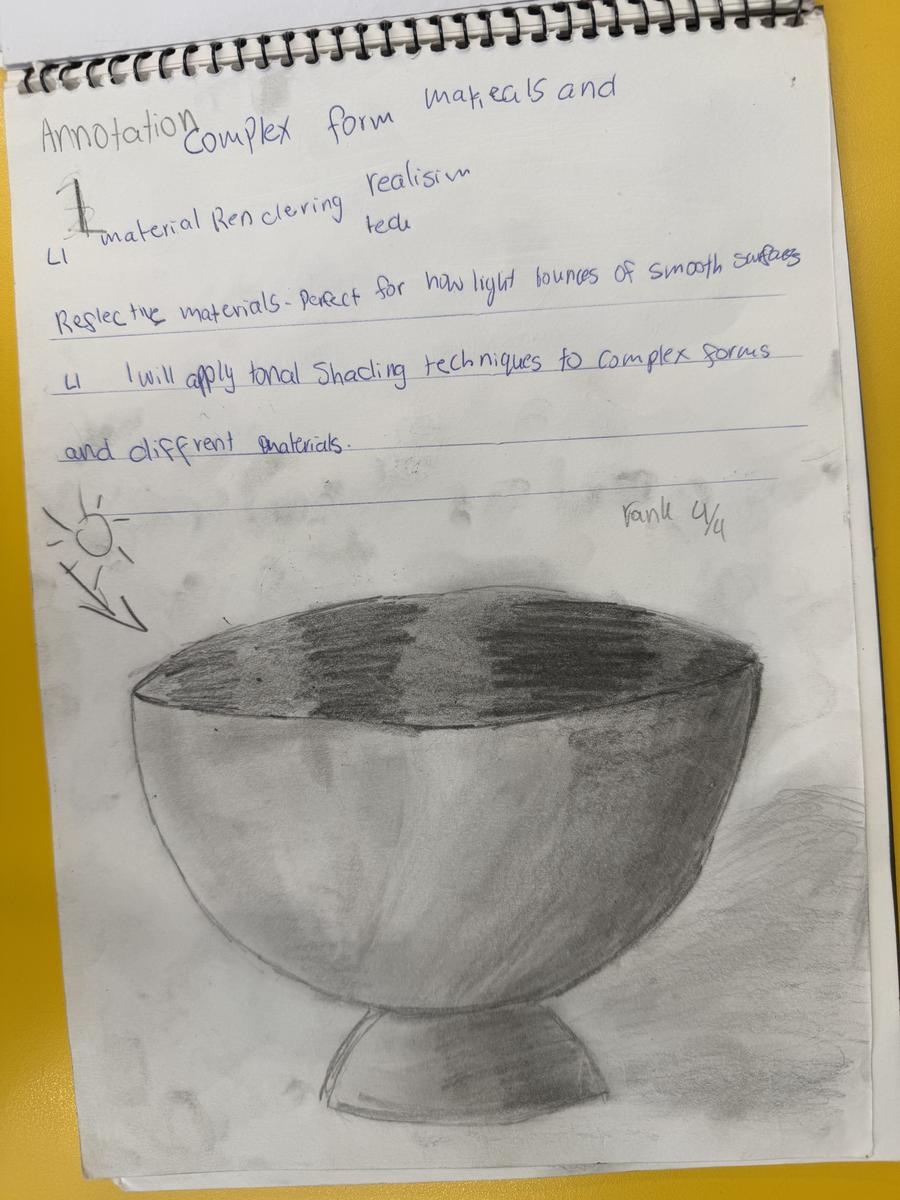 Annotation complex form mareals and
1
LI material Rendering realisim
tech
Reflective materials - Perfect for how light bounces of smooth surfaces
LI I will apply tonal Shading techniques to complex forms
and diffrent materials.
rank 4/4